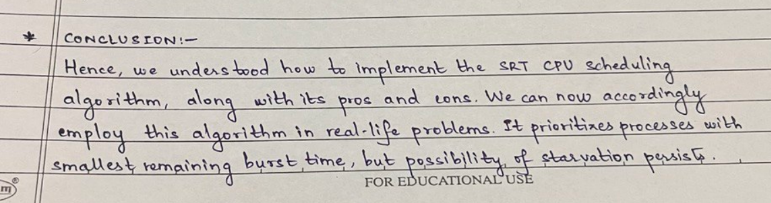 * CONCLUSION:-
Hence, we understood how to implement the SRT CPU scheduling
algorithm, along with its pros and cons. We can now accordingly
employ this algorithm in real-life problems. It prioritizes processes with
smallest remaining burst time, but possibility of starvation persists.
m®
FOR EDUCATIONAL USE